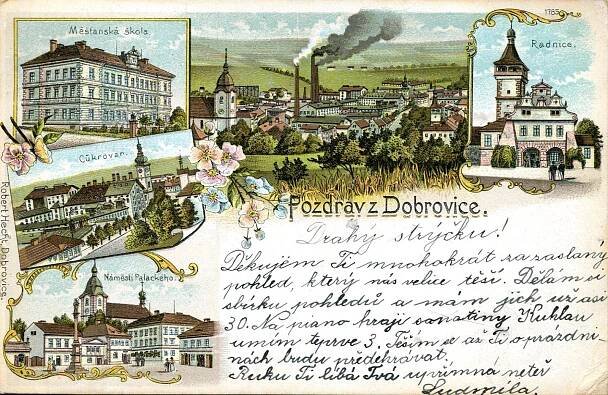 Měšťanská škola.
1785
Radnice.
Cukrovar.
Robert Hecht, Dobrovice.
Náměstí Palackého.
Pozdrav z Dobrovice.
Drahý strýčku!
Děkujem Ti mnohokrát za zaslaný
pohled, který nás velice těší. Dělám si
sbírku pohledů a mám jich už asi
30. Na piano hraji sonatiny Kuhlau
umím teprve 3. Těším se až Ti o prázdni-
nách budu předehrávat.
Ruku Ti líbá Tvá upřímná neteř
Ludmila.